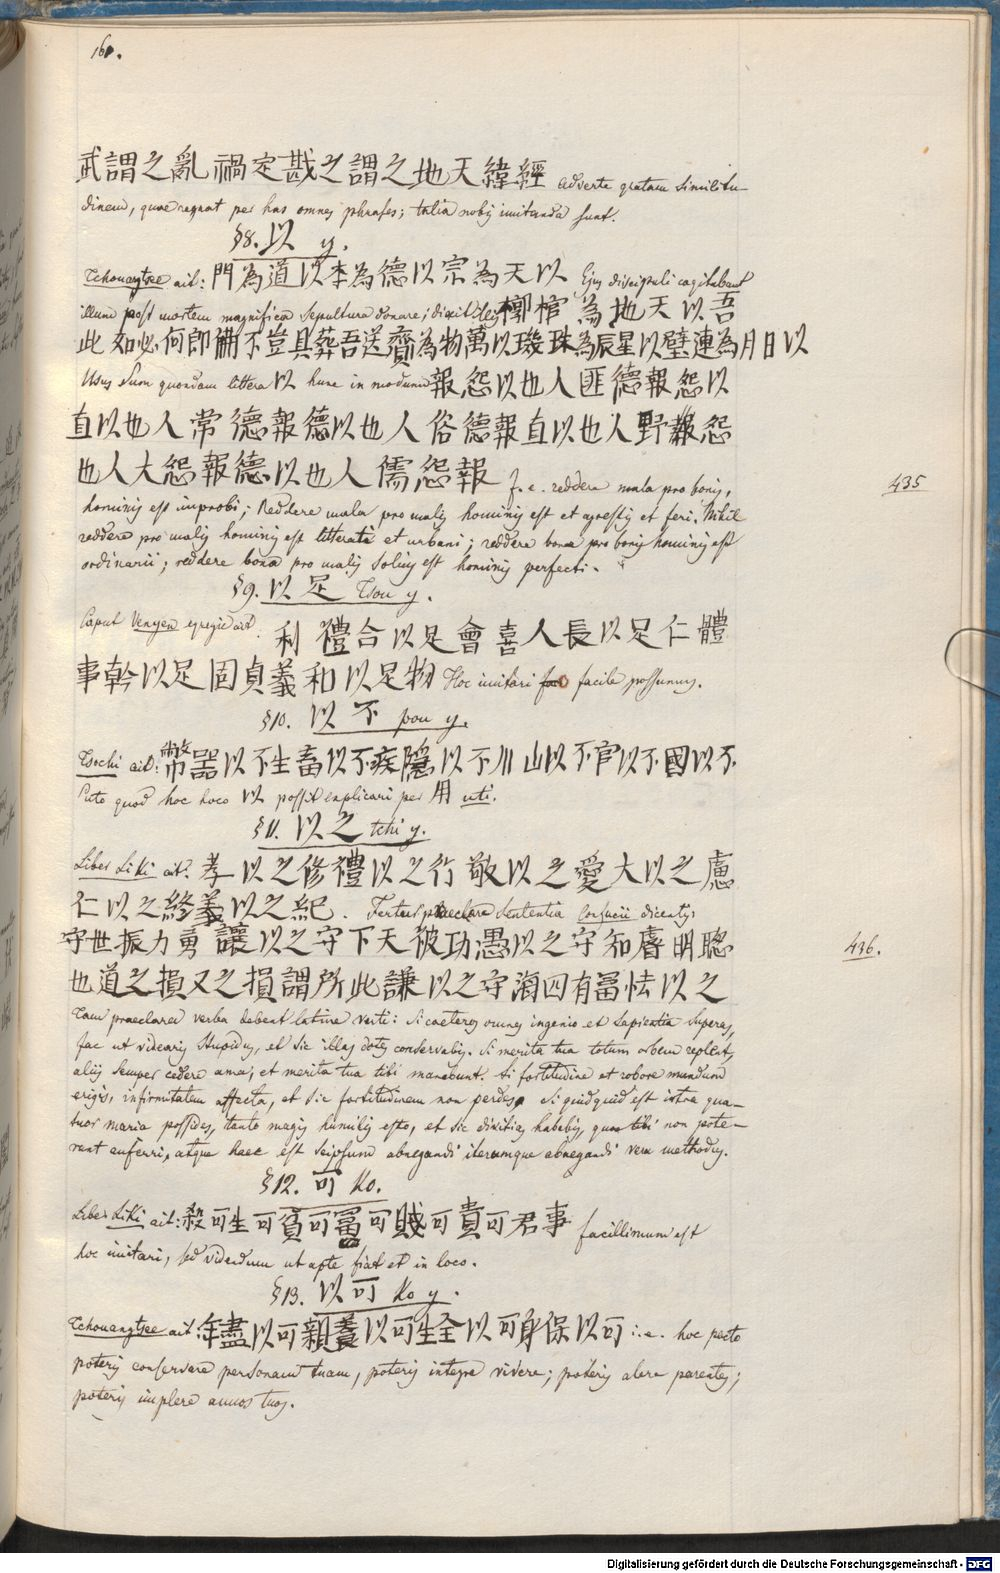 160.
經緯天地之謂之戡定禍亂之謂武 adverte gratam similitu-
dinem, quae regnat per has omnes phrases; talia nobis imitanda sunt.
§8. 以 y.
Tchouangtsee ait: 以天為宗以德為李以道為門 Ejus discipuli cogitabant
illum post mortem magnifica sepultura donare; dixit illis 吾以天地為棺槨
以日月為連璧以星辰為珠璣以萬物為齎送吾葬具豈不備即何必如此
Usus sum quondam littera 以 hunc in modum 以怨報德匪人也以怨報
怨報野人也以直報德俗人也以德報德常人也以直
報怨儒人也以德報怨大人也 J. e. reddere mala pro bonis,
435
hominis est improbi; Reddere mala pro malis hominis est et agrestis et feri. Nihil
reddere pro malis hominis est litterati et urbani; reddere bona pro bonis hominis est
ordinarii; reddere bona pro malis solius est hominis perfecti.
§9. 以足 Tsou y.
Caput Venyen egregie ait. 體仁足以長人喜會足以合禮利
物足以和義貞固足以幹事 Hoc imitari facile possumus.
§10. 以不 pou y.
Tsochi ait: 不以國不以官不以山川不以隱疾不以畜生不以器幣
Puto quod hoc loco 以 possit explicari per 用 uti.
§11. 以之 tchi y.
Liber Liki ait. 慮之以大愛之以敬行之以禮修之以孝
紀之以義終之以仁. Fertur praeclara sententia Confucii dicentis:
聰明睿知守之以愚功被天下守之以讓勇力振世守
436.
之以怯富有四海守之以謙此所謂損之又損之道也
Tam praeclara verba debent latine verti: Si caeteros omnes ingenio et sapientia superas,
fac ut videaris stupidus, et sic illas dotes conservabis. Si merita tua totum orbem replent,
aliis semper cedere ama, et merita tua tibi manebunt. Si fortitudine et robore mundum
erigis, infirmitatem affecta, et sic fortitudinem non perdes. Si quidquid est intra qua-
tuor maria possides, tanto magis humilis esto, et sic divitias habebis, quae tibi non pote-
runt auferri, atque haec est seipsum abnegandi iterumque abnegandi vera methodus.
§12. 可 Ko.
Liber Liki ait: 事君可貴可賤可富可貧可生可殺 facillimum est
hoc imitari, sed videndum ut apte fiat et in loco.
§13. 以可 Ko y.
Tchouangtsee ait: 可以保身可以全生可以養親可以盡年 i. e. hoc pacto
poteris conservare personam tuam, poteris integre vivere; poteris alere parentes;
poteris implere annos tuos.
Digitalisierung gefördert durch die Deutsche Forschungsgemeinschaft - DFG